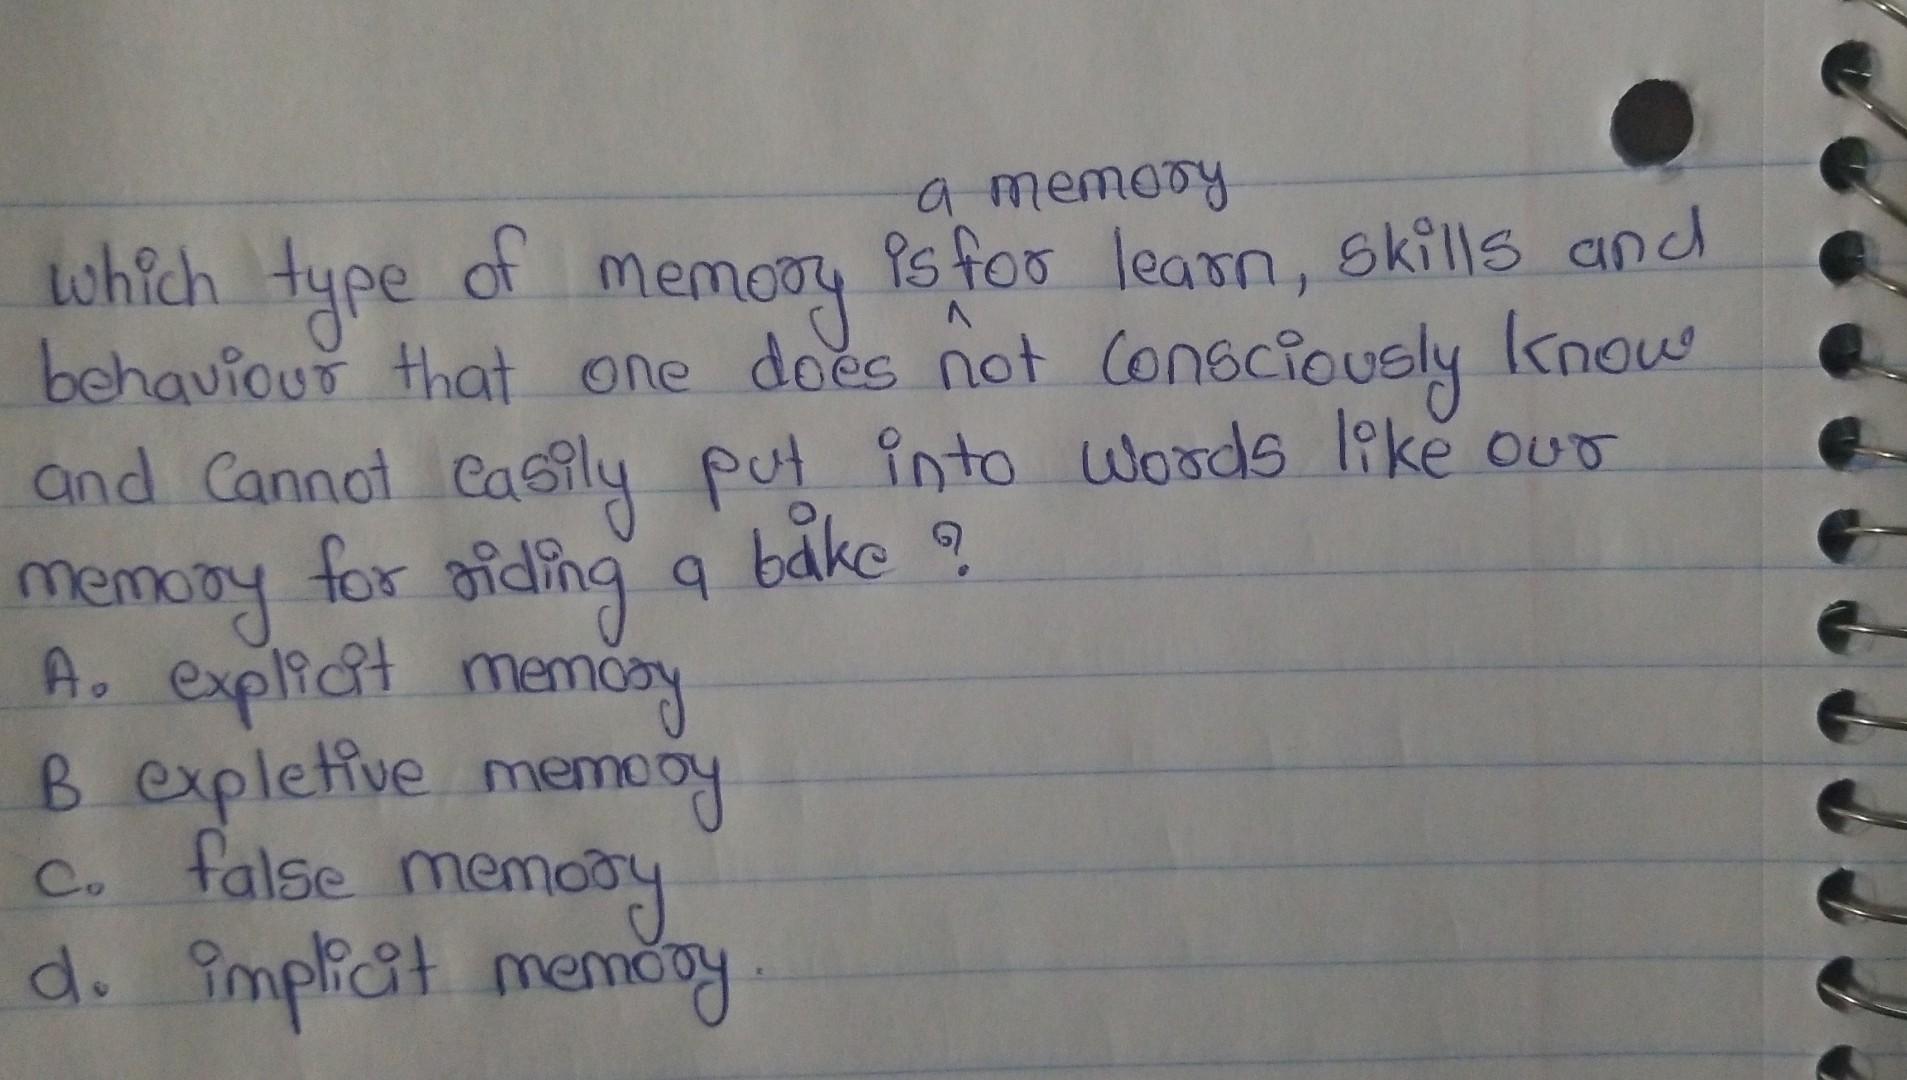 a memory
which type of memory is ^ for learn, skills and
behaviour that one does not consciously know
and cannot easily put into words like our
memory for riding a bike ?
A. explicit memory
B expletive memory
C. false memory
d. implicit memory.